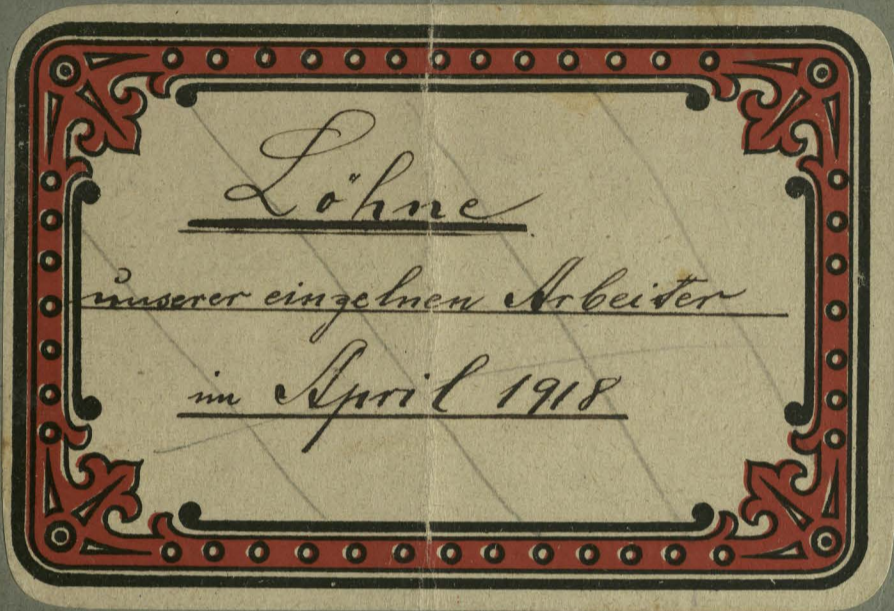 Löhne
unserer einzelnen Arbeiter
im April 1918